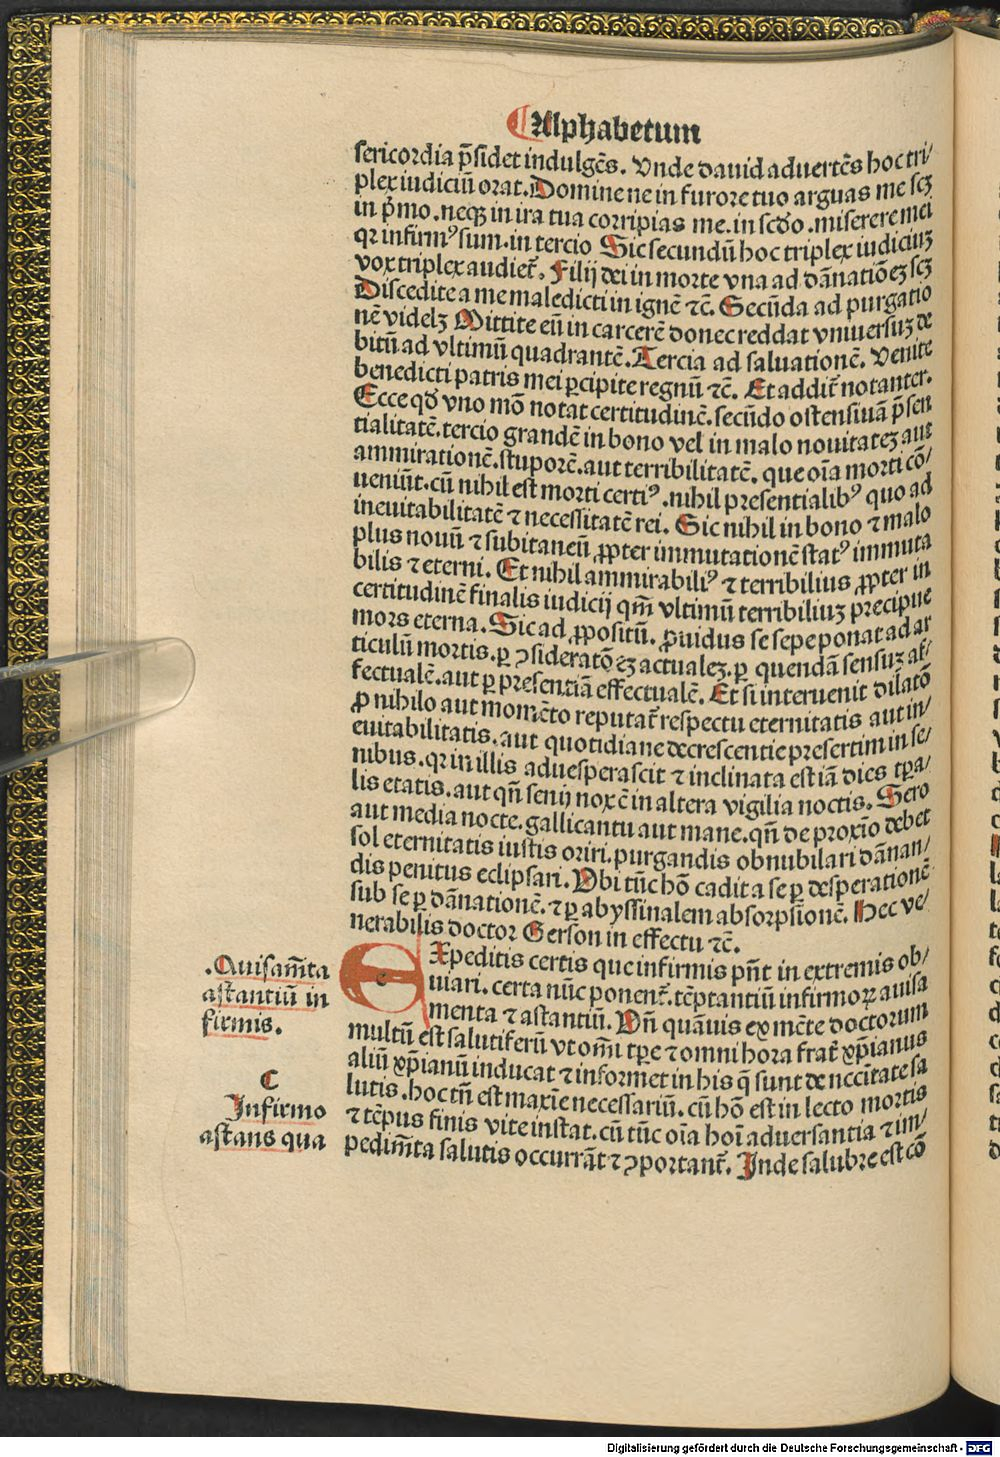 Alphabetum
sericordia p̄sidet indulgēs. Vnde dauid aduertēs hoc tri/
plex iudiciū orat. Domine ne in furore tuo arguas me scꝫ
in p̓mo. neqꝫ in ira tua corripias me. in scd̄o. miserere mei
qꝛ infirmꝰ sum. in tercio Sic secundū hoc triplex iudiciuꝫ
vox triplex audiet̄. Filij dei in morte vna ad dānatiōeꝫ scꝫ
Discedite a me maledicti in ignē ⁊c̄. Secūda ad purgatio
nē videlꝫ Mittite eū in carcerē donec reddat vniuersuꝫ de
bitū ad vltimū quadrantē. Tercia ad saluationē. Venite
benedicti patris mei ꝑcipite regnū ⁊c̄. Et addit̄ notanter.
Ecce qd̄ vno mō notat certitudinē. secūdo ostensiuā p̄sen
tialitatē. tercio grandē in bono vel in malo nouitateꝫ aut
ammirationē. stuporē. aut terribilitatē. que oīa morti cō/
ueniūt. cū nihil est morti certiꝰ. nihil presentialibꝰ quo ad
ineuitabilitatē ⁊ necessitatē rei. Sic nihil in bono ⁊ malo
plus nouū ⁊ subitaneū ꝓpter immutationē statꝰ immuta
bilis ⁊ eterni. Et nihil ammirabiliꝰ ⁊ terribilius ꝓpter in
certitudinē finalis iudicij qm̄ vltimū terribiliuꝫ precipue
mors eterna. Sic ad ꝓpositū. ꝓuidus se sepe ponat ad ar
ticulū mortis. ꝑ ꝯsideratōeꝫ actualeꝫ. ꝑ quendā sensuꝫ af/
fectualē. aut ꝑ presentiā effectualē. Et si interuenit dilatō
ꝓ nihilo aut momēto reputat̄ respectu eternitatis aut in/
euitabilitatis. aut quotidiane decrescentie presertim in se/
nibus. qꝛ in illis aduesperascit ⁊ inclinata est iā dies tꝑa/
lis etatis. aut qn̄ senij nox ē in altera vigilia noctis. Sero
aut media nocte. gallicantu aut mane. qn̄ de proxīo debet
sol eternitatis iustis oriri. purgandis obnubilari dānan/
dis penitus eclipsari. Vbi tūc hō cadit a se ꝑ desperationē
sub se ꝑ dānationē. ⁊ ꝑ abyssinalem absorpsionē. Hec ve/
nerabilis doctor Gerson in effectu ⁊c̄.
EXpeditis certis que infirmis pn̄t in extremis ob/
uiari. certa nūc ponent̄. tēptantiū infirmoꝝ auisa
menta ⁊ astantiū. Vn̄ quāuis ex mēte doctorum
multū est salutiferū vt om̄i tꝑe ⁊ omni hora frat̄ xp̄ianus
aliū xp̄ianū inducat ⁊ informet in his q̄ sunt de nccītate sa
lutis. hoc tn̄ est maxīe necessariū. cū hō est in lecto mortis
⁊ tēpus finis vite instat. cū tūc oīa hoī aduersantia ⁊ im/
pedim̄ta salutis occurrāt ⁊ ꝯportant̄. Inde salubre est cō
.Auisam̄ta
astantiū in
firmis.
C
Infirmo
astans qua
Digitalisierung gefördert durch die Deutsche Forschungsgemeinschaft - DFG